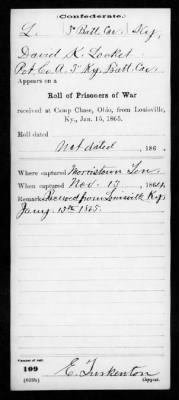 (Confederate.)
L. 3 Batt. Cav. Ky.
David K. Locket
Pvt. Co. A. 3" Ky. Batt. Cav.
Appears on a
Roll of Prisoners of War
received at Camp Chase, Ohio, from Louisville,
Ky., Jan. 15, 1865.
Roll dated
Not dated, 186 .
Where captured Morristown Ten.
When captured Nov. 13, 1864.
Remarks: Received from Louisville Ky.
Jany 15th 1865.
Number of roll:
109
E. Turkenton
Copyist.